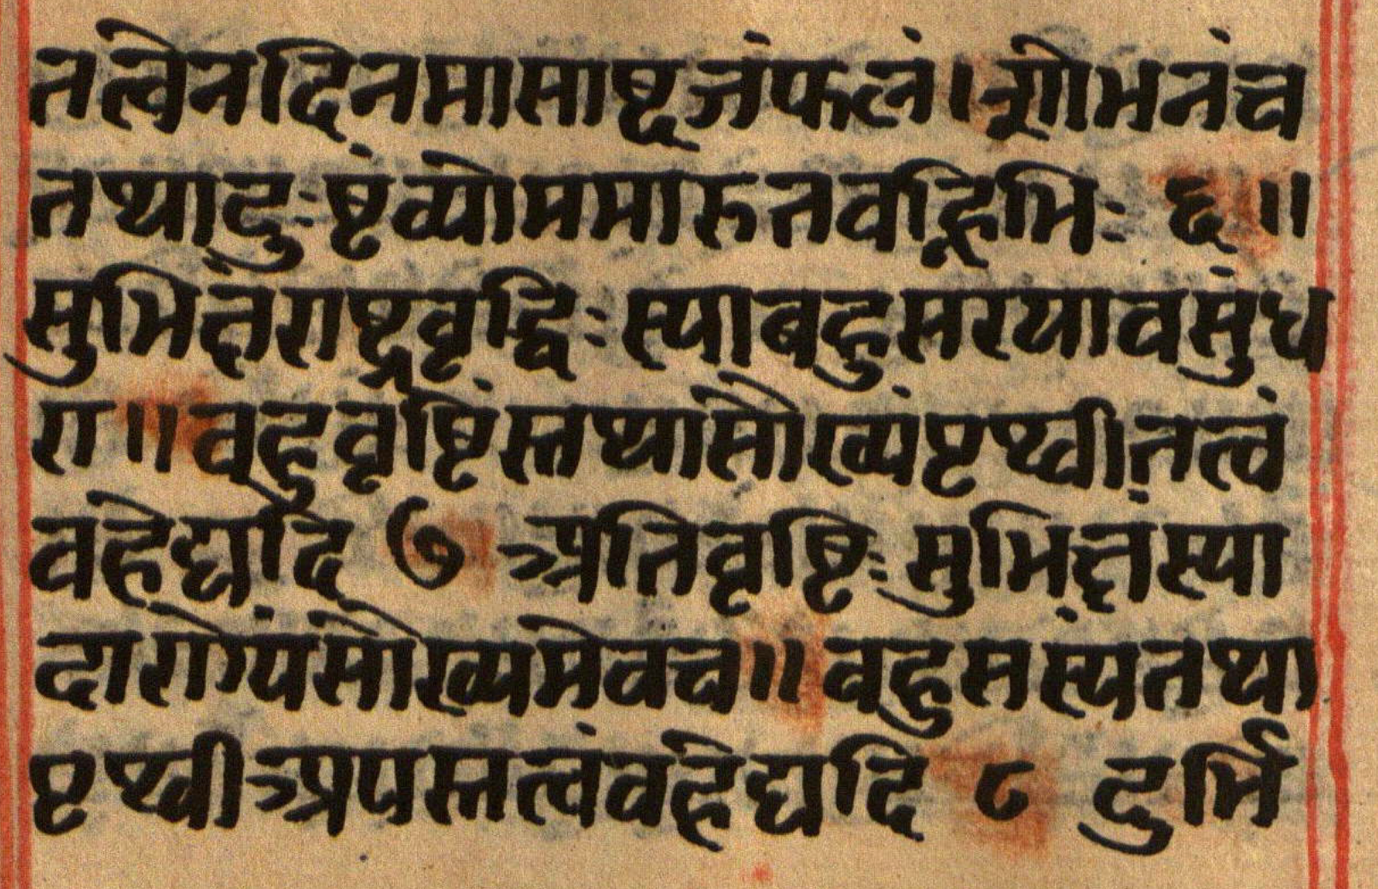 तत्वेनदिनमासाष्टजंफलं।शोभनंच
तथादुःष्टंव्योममारुतवह्निभिः ६॥
सुभिक्षंराष्ट्रवृद्धिःस्याबहुसस्यावसुंध
रा॥वहुवृष्टिंस्तथासौख्यंपृथ्वीतत्वं
वहेद्यदि ७ अतिवृष्टिःसुभिक्षस्या
दारोग्यंसौख्यमेवच॥वहुसस्यंतथा
पृथ्वीअपस्तत्वंवहेद्यदि ८ दुर्भि